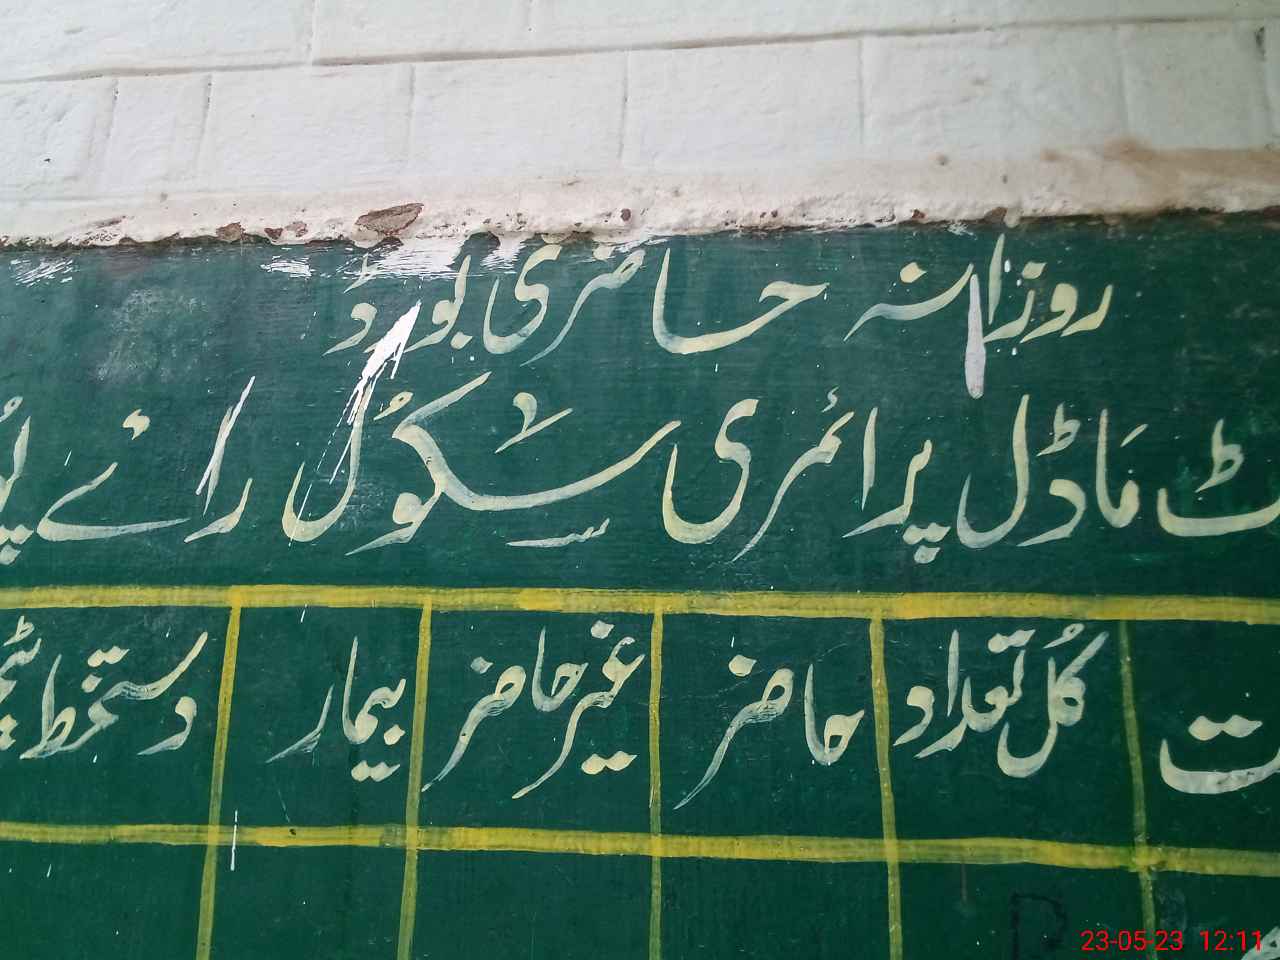 روزانہ حاضری بورڈ
ماڈل پرائمری سکول رائے
کل تعداد حاضر غیر حاضر بیمار دستخط
23-05-23 12:11